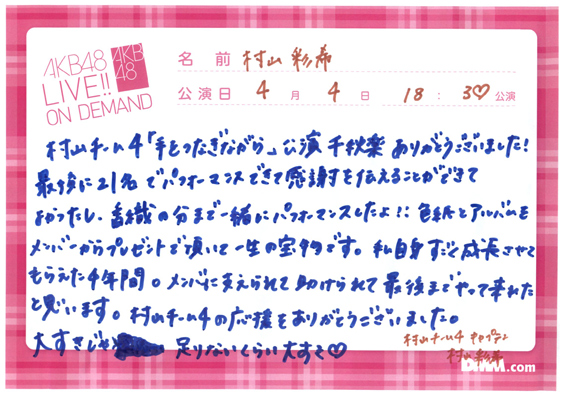 AKB48
LIVE!!
ON DEMAND
AKB
48
名前 村山彩希
公演日 4月4日 18:30♡公演
村山チーム4「手をつなぎながら」公演 千秋楽 ありがとうございました!
最後に21名でパフォーマンスできて感謝を伝えることができて
よかったし、香織の分まで一緒にパフォーマンスしたよ!! 色紙とアルバムを
メンバーからプレゼントで頂いて一生の宝物です。私自身すごく成長させて
もらえた4年間。メンバーに支えられて助けられて最後までやって来れた
と思います。村山チーム4の応援をありがとうございました。
大すきじゃ 足りないくらい大すき♡
村山チーム4 キャプテン
村山彩希
DMM.com